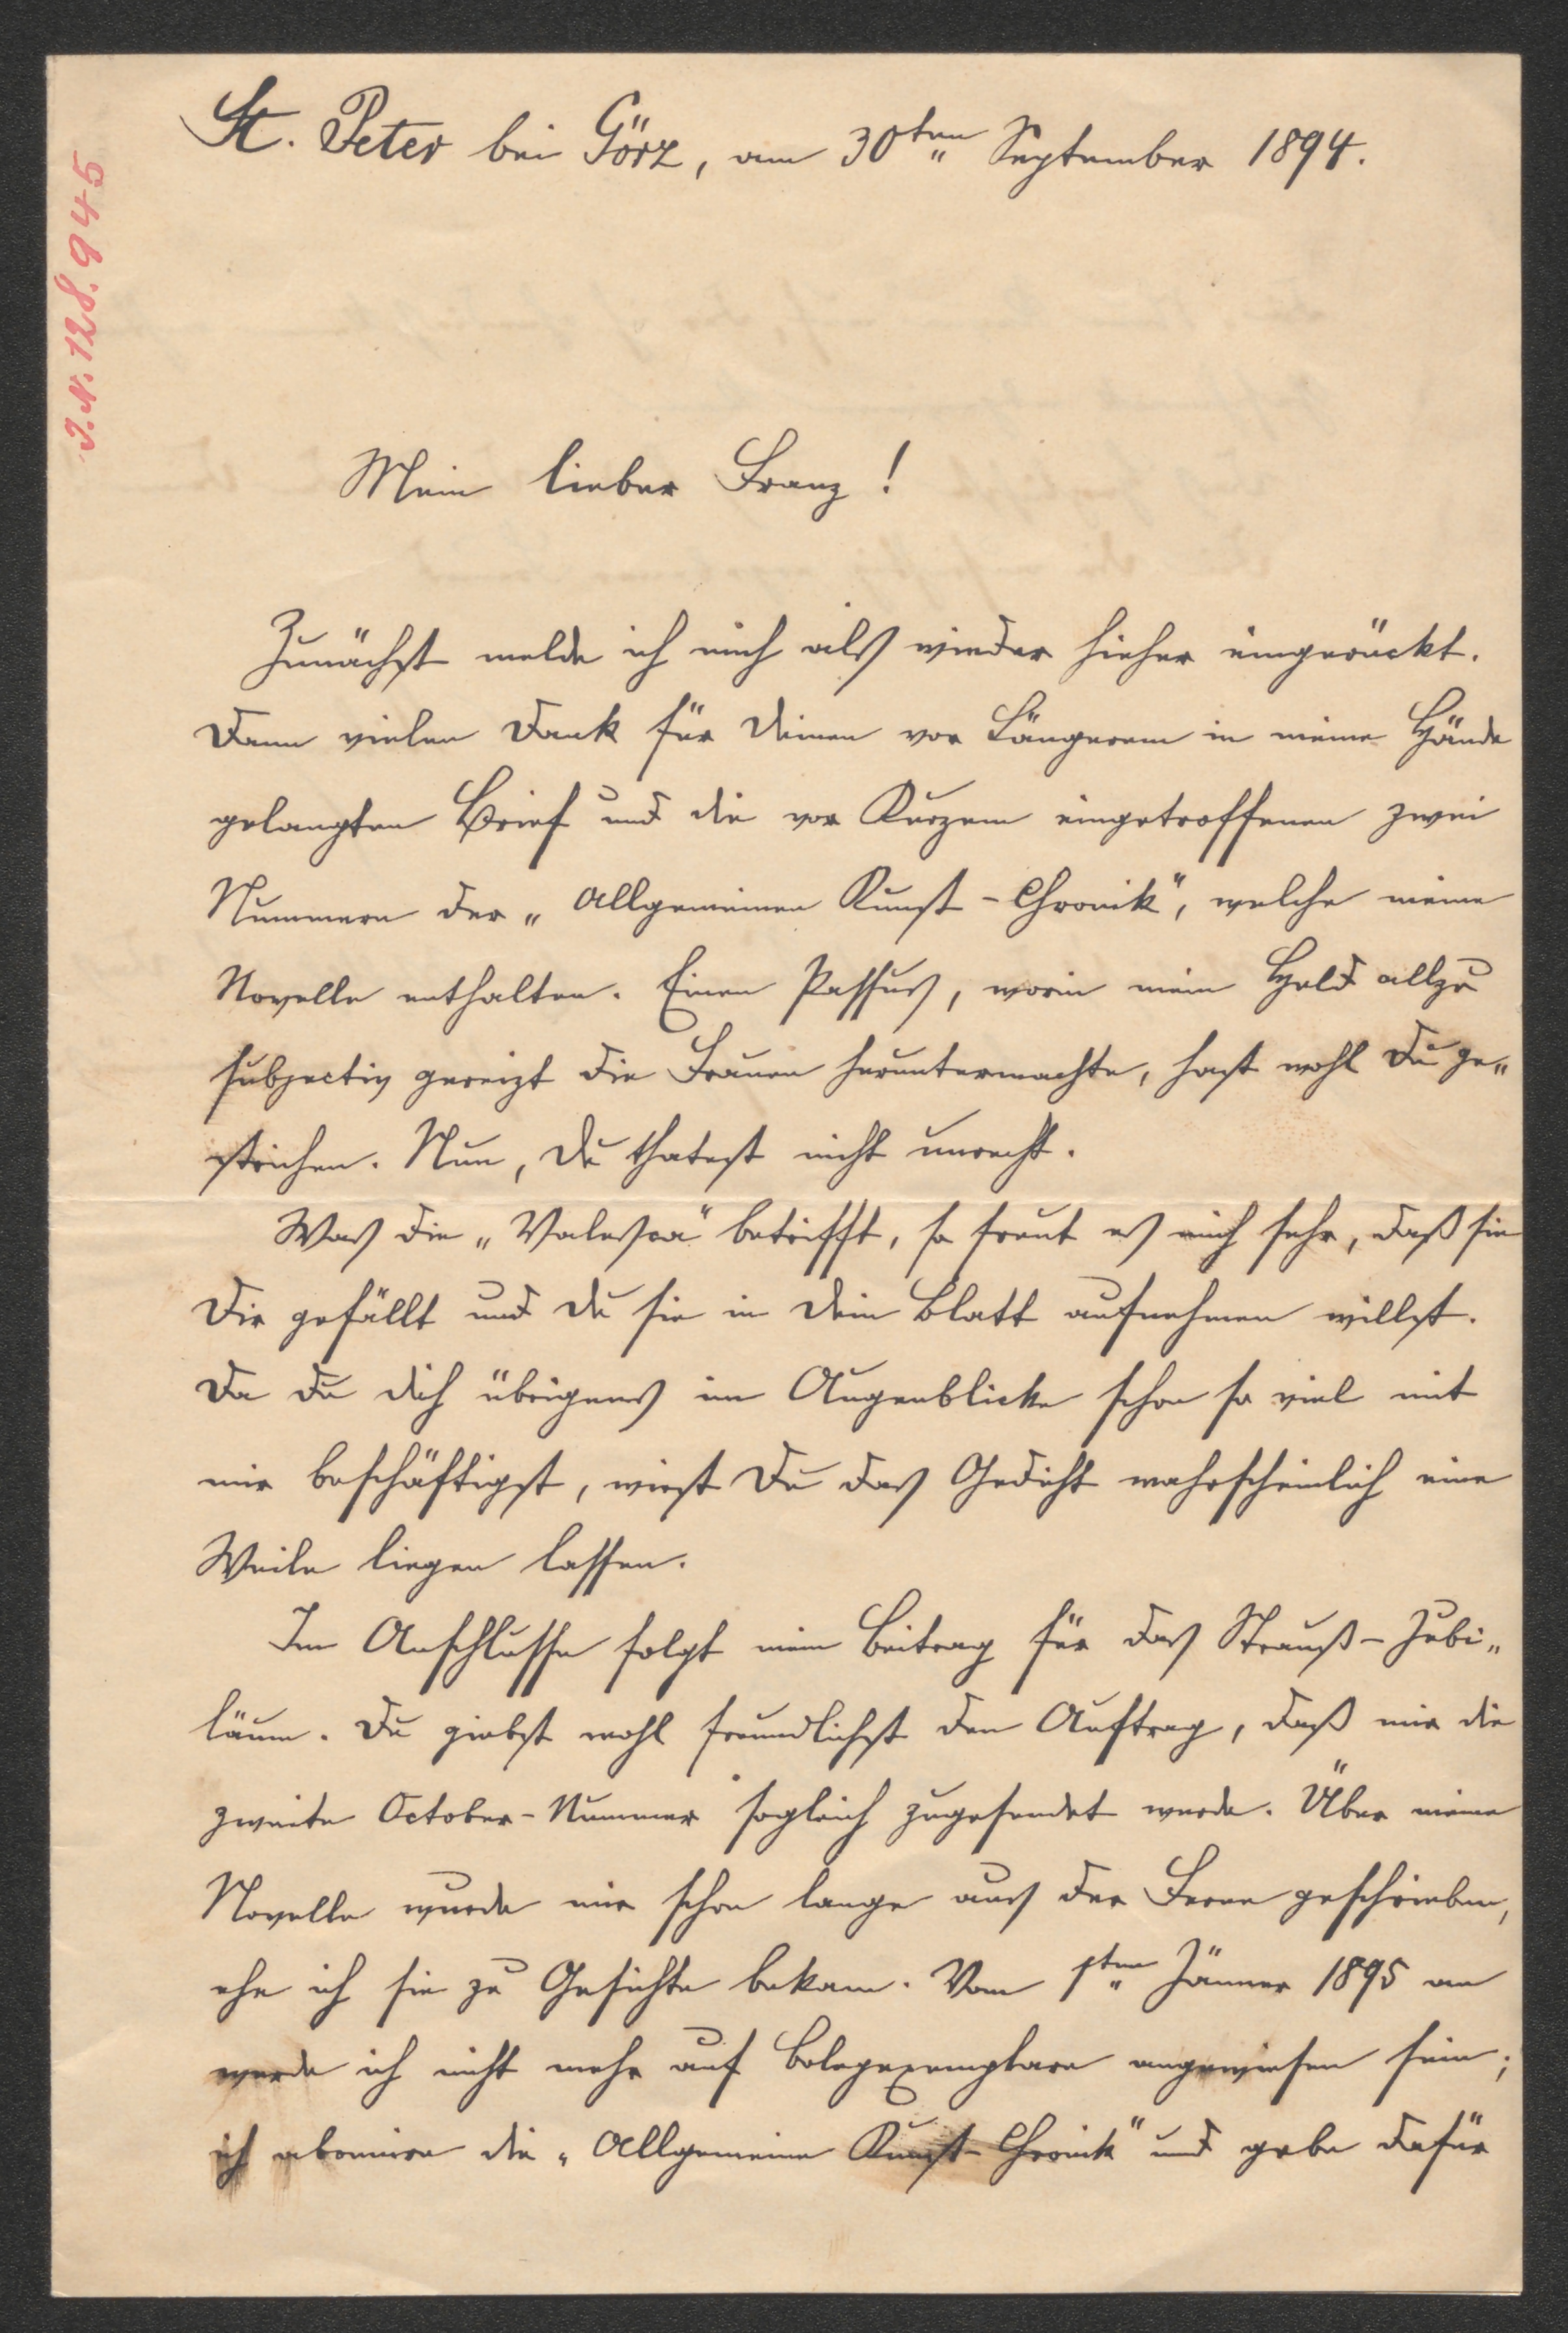 St. Peter bei Görz, am 30ten September 1894.
J.N. 128.945
Mein lieber Franz!
Zunächst melde ich mich als wieder hieher eingerückt.
Dann vielen Dank für Deinen vor Längerem in meine Hände
gelangten Brief und die vor Kurzem eingetroffenen zwei
Nummern der „Allgemeinen Kunst-Chronik", welche meine
Novelle enthalten. Einen Passus, worin mein Held allzu
subjectiv gereizt die Frauen heruntermachte, hast wohl Du ge„
strichen. Nun, Du thatest nicht unrecht.
Was die betrifft, so freut es mich sehr, daß sie
Dir gefällt und Du sie in Dein Blatt aufnehmen willst.
Da Du Dich übrigens im Augenblicke schon so viel mit
mir beschäftigst, wirst Du das Gedicht wahrscheinlich eine
Weile liegen lassen.
Im Anschlusse folgt mein Beitrag für das Strauß-Jubi„
läum. Du giebst wohl freundlichst den Auftrag, daß mir die
zweite October-Nummer sogleich zugesendet werde. Über meine
Novelle wurde mir schon lange aus der Ferne geschrieben,
ehe ich sie zu Gesichte bekam. Vom 1ten Jänner 1895 an
werde ich nicht mehr auf Belegexemplare angewiesen sein;
ich abonnire die „Allgemeine Kunst-Chronik" und gebe dafür